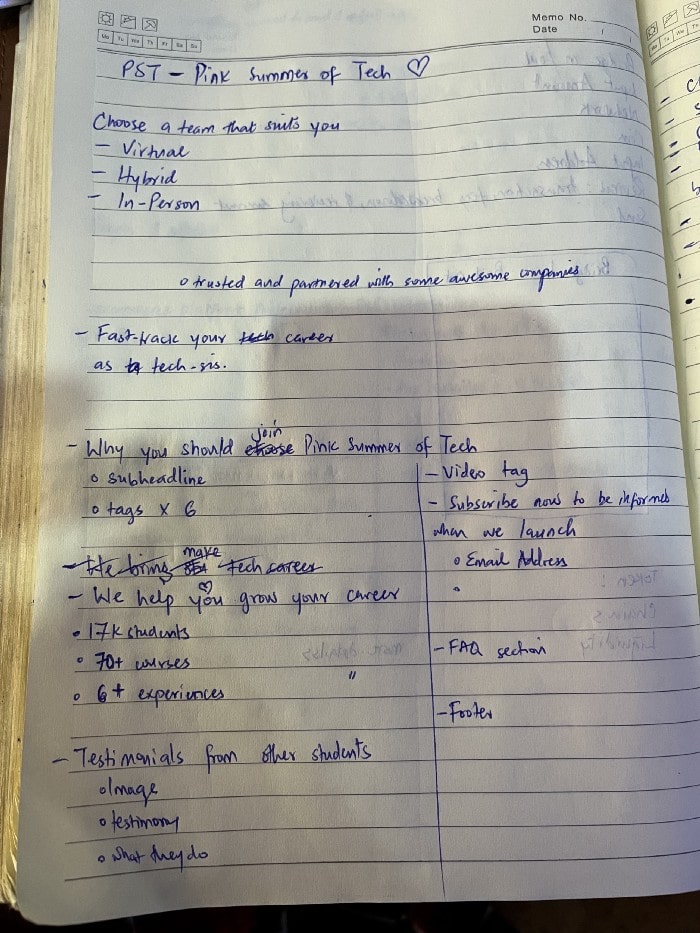 Memo No.
Date / /
Mo Tu We Th Fr Sa Su
PST - Pink Summer of Tech ♡
Choose a team that suits you
- Virtual
- Hybrid
- In-Person
o trusted and partnered with some awesome companies
- Fast-track your tech career
as tech-sis.
- Why you should choose join Pink Summer of Tech
o subheadline
o tags x 6
- We bring make tech career
- We help you grow your career
• 17k students
• 70+ courses
"
• 6+ experiences
- Testimonials from other students
o Image
o testimony
o what they do
- Video tag
- Subscribe now to be informed
when we launch
o Email Address
o
- FAQ section
- Footer